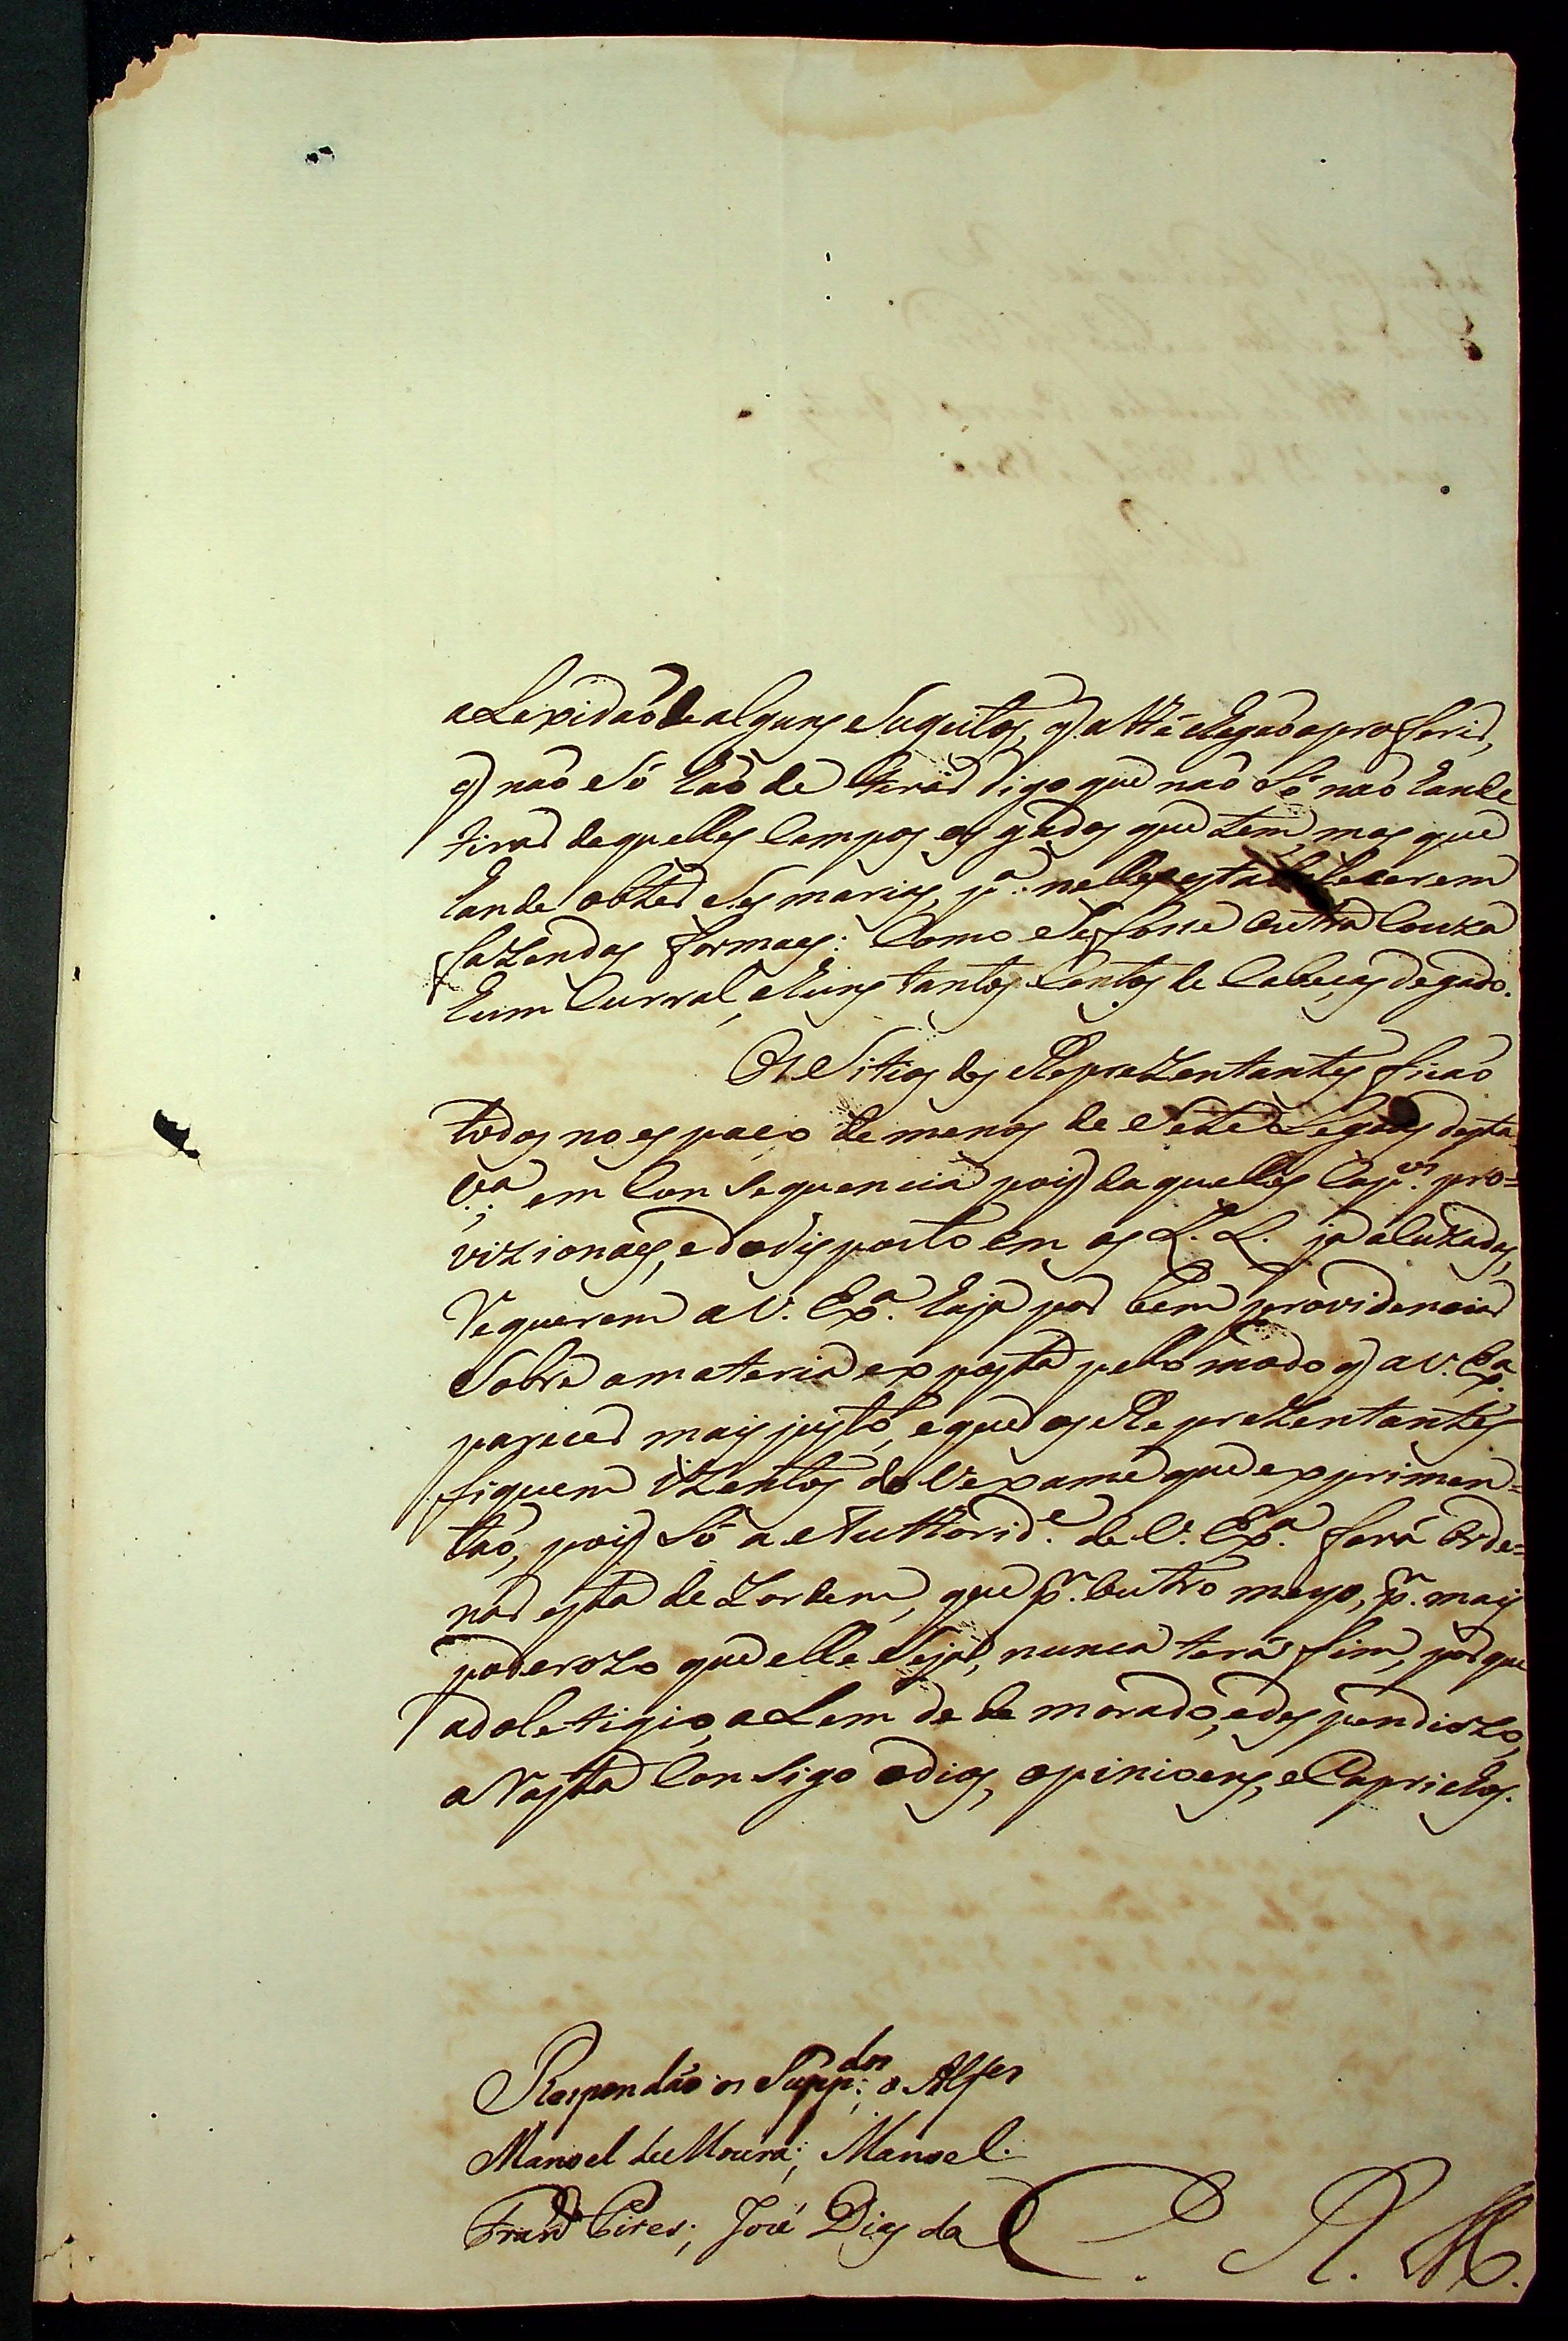 a Lepidaõ de alguns Sugeitos, q. atthé chegaõ a proferir,
q. naõ só haõ de tirar digo que naõ só naõ hande
tirar daquelles Campos os gados que tem, mas que
hande obter Sesmarias, p.ª nelles estabelecerem
fazendas formaes: Como se fosse outra Couza
hum Curral, e huns tantos Centos de Cabeças de gado.
Os Sitios dos Reprezentantes ficaõ
todos no espaço de menos de Sete Legoas desta
V.ª; em Consequencia pois daquelles Cap.os pro=
vizionaes, e do disposto em as L. L. ja aluzadas,
Requerem a V. Ex.ª haja por bem providenciar
Sobre a materia exposta pelo modo q. a V. Ex.ª
parecer mais justo, e que os Reprezentantes
fiquem izentos do Vexame que exprimen=
taõ, pois Só a Authorid.e de V. Ex.ª fará Orde=
nar esta dezordem, que p.r outro meyo, p.r mais
poderozo que elle Seja, nunca terá fim, por que
a do letigio, a Lem de demorado, e despendiozo,
a Rasta Consigo odios, opinioens, e Caprichos.
Respondaõ os Supp.dos o Alfes
Manoel de Moura; Manoel
Fran.co Pires; José Dias da
C. R. M.